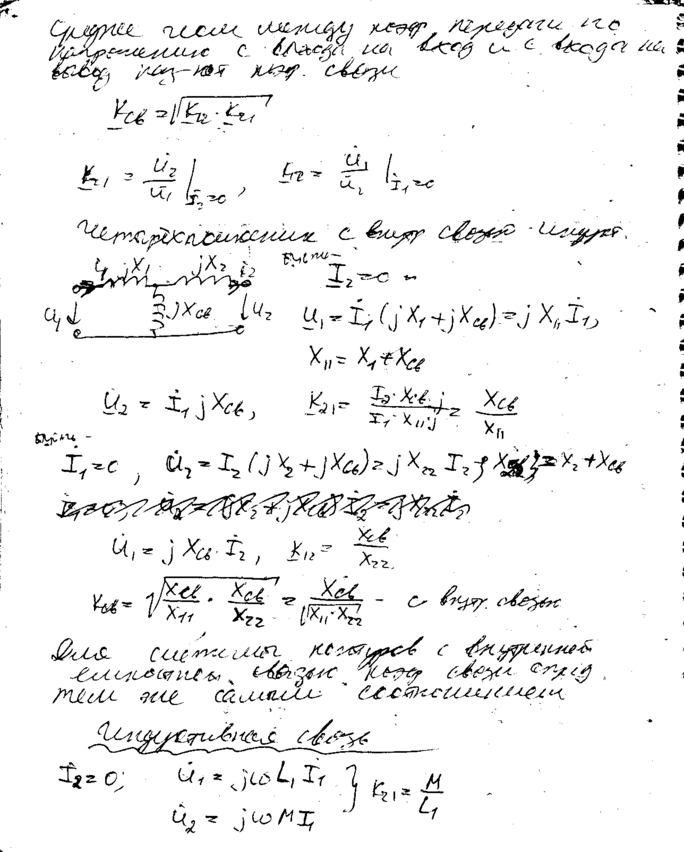 Среднее геом между коэф. передачи по
напряжению с выхода на вход и с входа на
выход наз-ют коэф. связи
K_св = √(K_12 · K_21)
K_21 = U̇_2 / U̇_1 |_İ_2=0 , K_12 = U̇_1 / U̇_2 |_İ_1=0
Четырёхполюсник с внутр связью индукт.
jX_1 jX_2 i_2 İ_2 = 0
U_1 jX_св U_2 U̇_1 = İ_1 (jX_1 + jX_св) = j X_11 İ_1,
X_11 = X_1 + X_св
U̇_2 = İ_1 jX_св, K_21 = I_2·X_св·j / I_1·X_11·j = X_св / X_11
İ_1 = 0, U̇_2 = I_2 (jX_2 + jX_св) = jX_22 I_2 ; X_22 = X_2 + X_св
U̇_1 = j X_св · İ_2, K_12 = X_св / X_22
K_св = √(X_св / X_11 · X_св / X_22) = X_св / √(X_11 · X_22) - с внут. связью
Для системы контуров с внутренней
емкостной связью коэф связи опред.
тем же самым соотношением
Индуктивная связь
İ_2 = 0; U̇_1 = jωL_1 İ_1 } K_21 = M / L_1
U̇_2 = jωM I_1